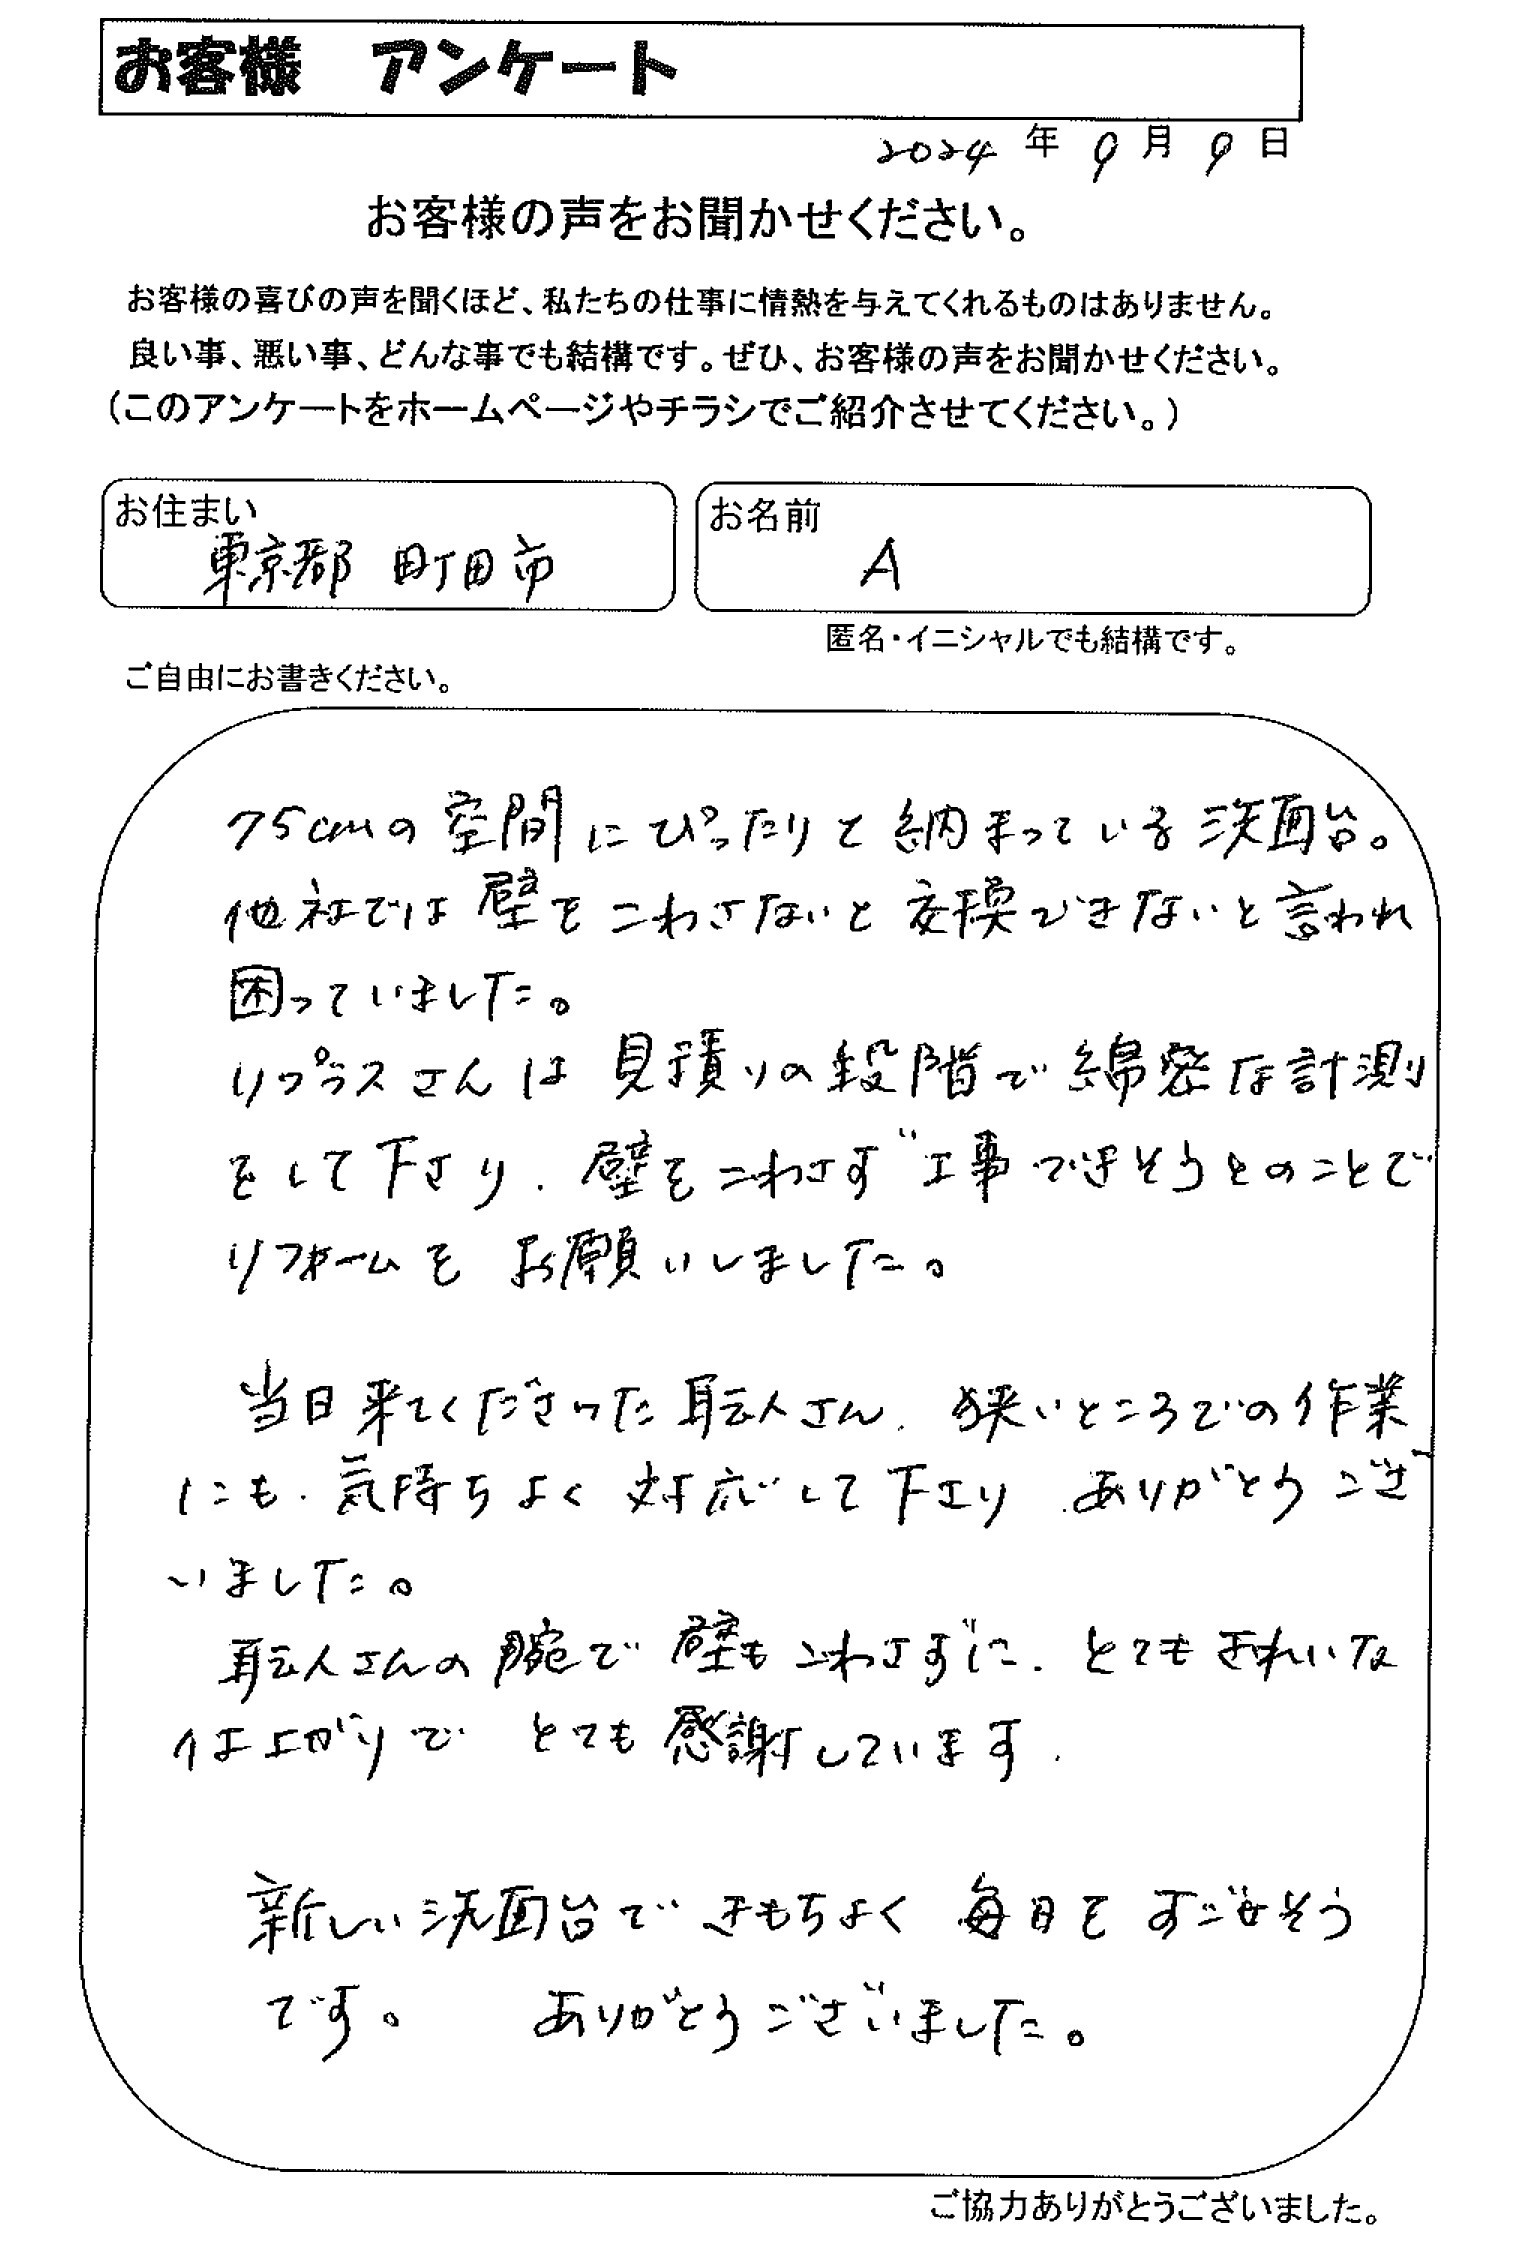 お客様 アンケート
2024 年 9 月 9 日
お客様の声をお聞かせください。
お客様の喜びの声を聞くほど、私たちの仕事に情熱を与えてくれるものはありません。
良い事、悪い事、どんな事でも結構です。ぜひ、お客様の声をお聞かせください。
(このアンケートをホームページやチラシでご紹介させてください。)
お住まい
東京都 町田市
お名前
A
匿名・イニシャルでも結構です。
ご自由にお書きください。
75cmの空間にぴったりと納まっている洗面台。
他社では壁をこわさないと交換できないと言われ
困っていました。
リプラスさんは見積りの段階で綿密な計測
をして下さり、壁をこわさず工事できそうとのことで
リフォームをお願いしました。
当日来てくださった職人さん、狭いところでの作業
にも、気持ちよく対応して下さり、ありがとうござ
いました。
職人さんの腕で壁もこわさずに、とてもきれいな
仕上がりで とても感謝しています。
新しい洗面台できもちよく毎日をすごせそう
です。 ありがとうございました。
ご協力ありがとうございました。